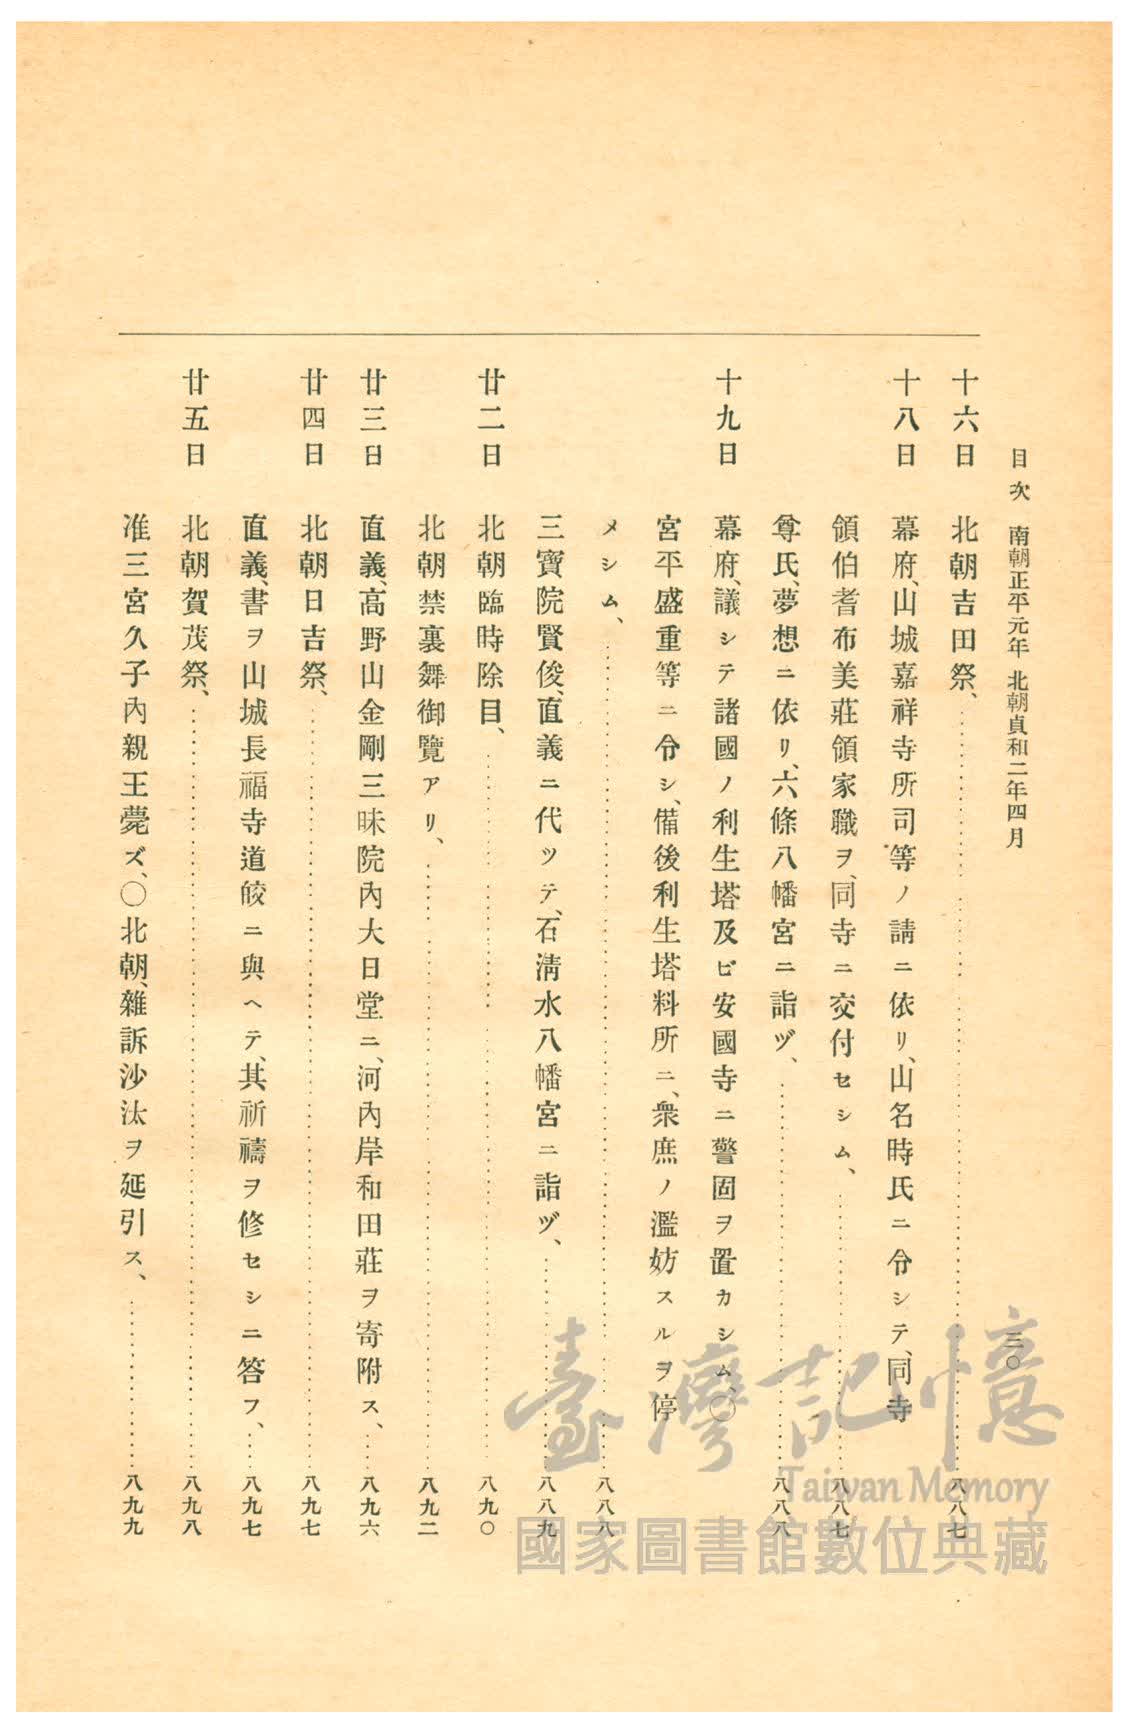 目次 南朝正平元年 北朝貞和二年四月 三〇
十六日 北朝吉田祭、 八八七
十八日 幕府、山城嘉祥寺所司等ノ請ニ依リ、山名時氏ニ令シテ、同寺
領伯耆布美莊領家職ヲ、同寺ニ交付セシム、 八八七
尊氏、夢想ニ依リ、六條八幡宮ニ詣ヅ、 八八八
十九日 幕府、議シテ諸國ノ利生塔及ビ安國寺ニ警固ヲ置カシム、〇
宮平盛重等ニ令シ、備後利生塔料所ニ、衆庶ノ濫妨スルヲ停
メシム、 八八八
三寶院賢俊、直義ニ代ツテ、石淸水八幡宮ニ詣ヅ、 八八九
廿二日 北朝臨時除目、 八九〇
北朝禁裏舞御覽アリ、 八九二
廿三日 直義、高野山金剛三昧院內大日堂ニ、河內岸和田莊ヲ寄附ス、 八九六
廿四日 北朝日吉祭、 八九七
直義、書ヲ山城長福寺道皎ニ與ヘテ、其祈禱ヲ修セシニ答フ、 八九七
廿五日 北朝賀茂祭、 八九八
准三宮久子內親王薨ズ、〇北朝、雜訴沙汰ヲ延引ス、 八九九
臺灣記憶
Taiwan Memory
國家圖書館數位典藏